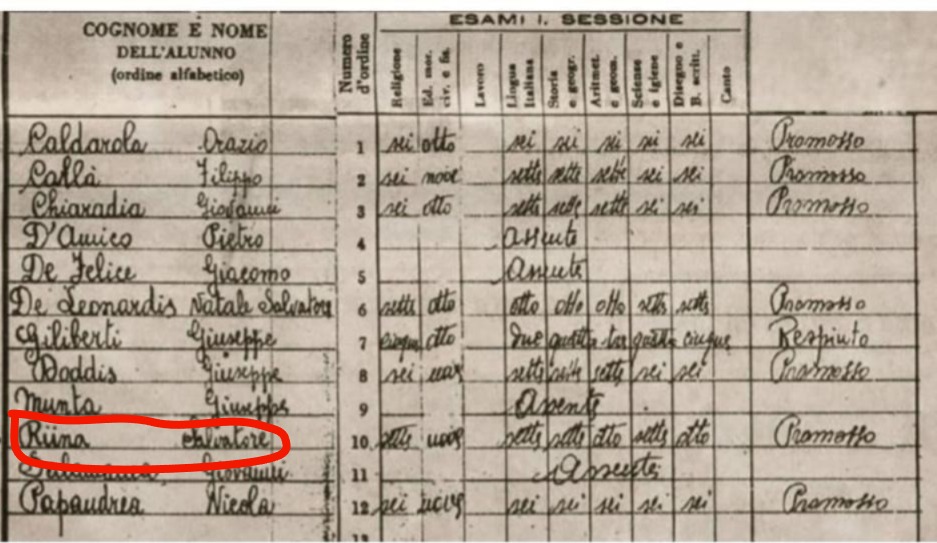 ESAMI I. SESSIONE
COGNOME E NOME DELL'ALUNNO (ordine alfabetico) Numero d'ordine Religione Ed. mor. civ. e fis. Lavoro Lingua Italiana Storia e geogr. Aritmet. e geom. Scienze e igiene Disegno e B. scritt. Canto
Caldarola Orazio 1 sei otto sei sei sei sei sei Promosso
Callà Filippo 2 sei nove sette sette sette sei sei Promosso
Chiaradia Giovanni 3 sei otto sette sette sette sei sei Promosso
D'Amico Pietro 4 Assente
De Felice Giacomo 5 Assente
De Leonardis Natale Salvatore 6 sette otto otto otto otto sette sette Promosso
Giliberti Giuseppe 7 cinque otto due quattro tre quattro cinque Respinto
Doddis Giuseppe 8 sei nove sette sette sette sei sei Promosso
Munta Giuseppe 9 Assente
Riina Salvatore 10 sette nove sette sette otto sette otto Promosso
Giovanni 11 Assente
Papandrea Nicola 12 sei nove sei sei sei sei sei Promosso
13